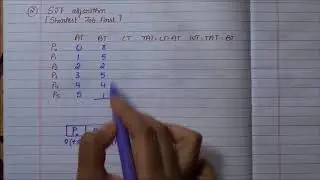 ② SJF algorithm
[Shortest Job First]
AT BT CT TAT=CT-AT WT=TAT-BT
P0 0 8
P1 1 5
P2 2 2
P3 3 5
P4 4 4
P5 5 1
P0